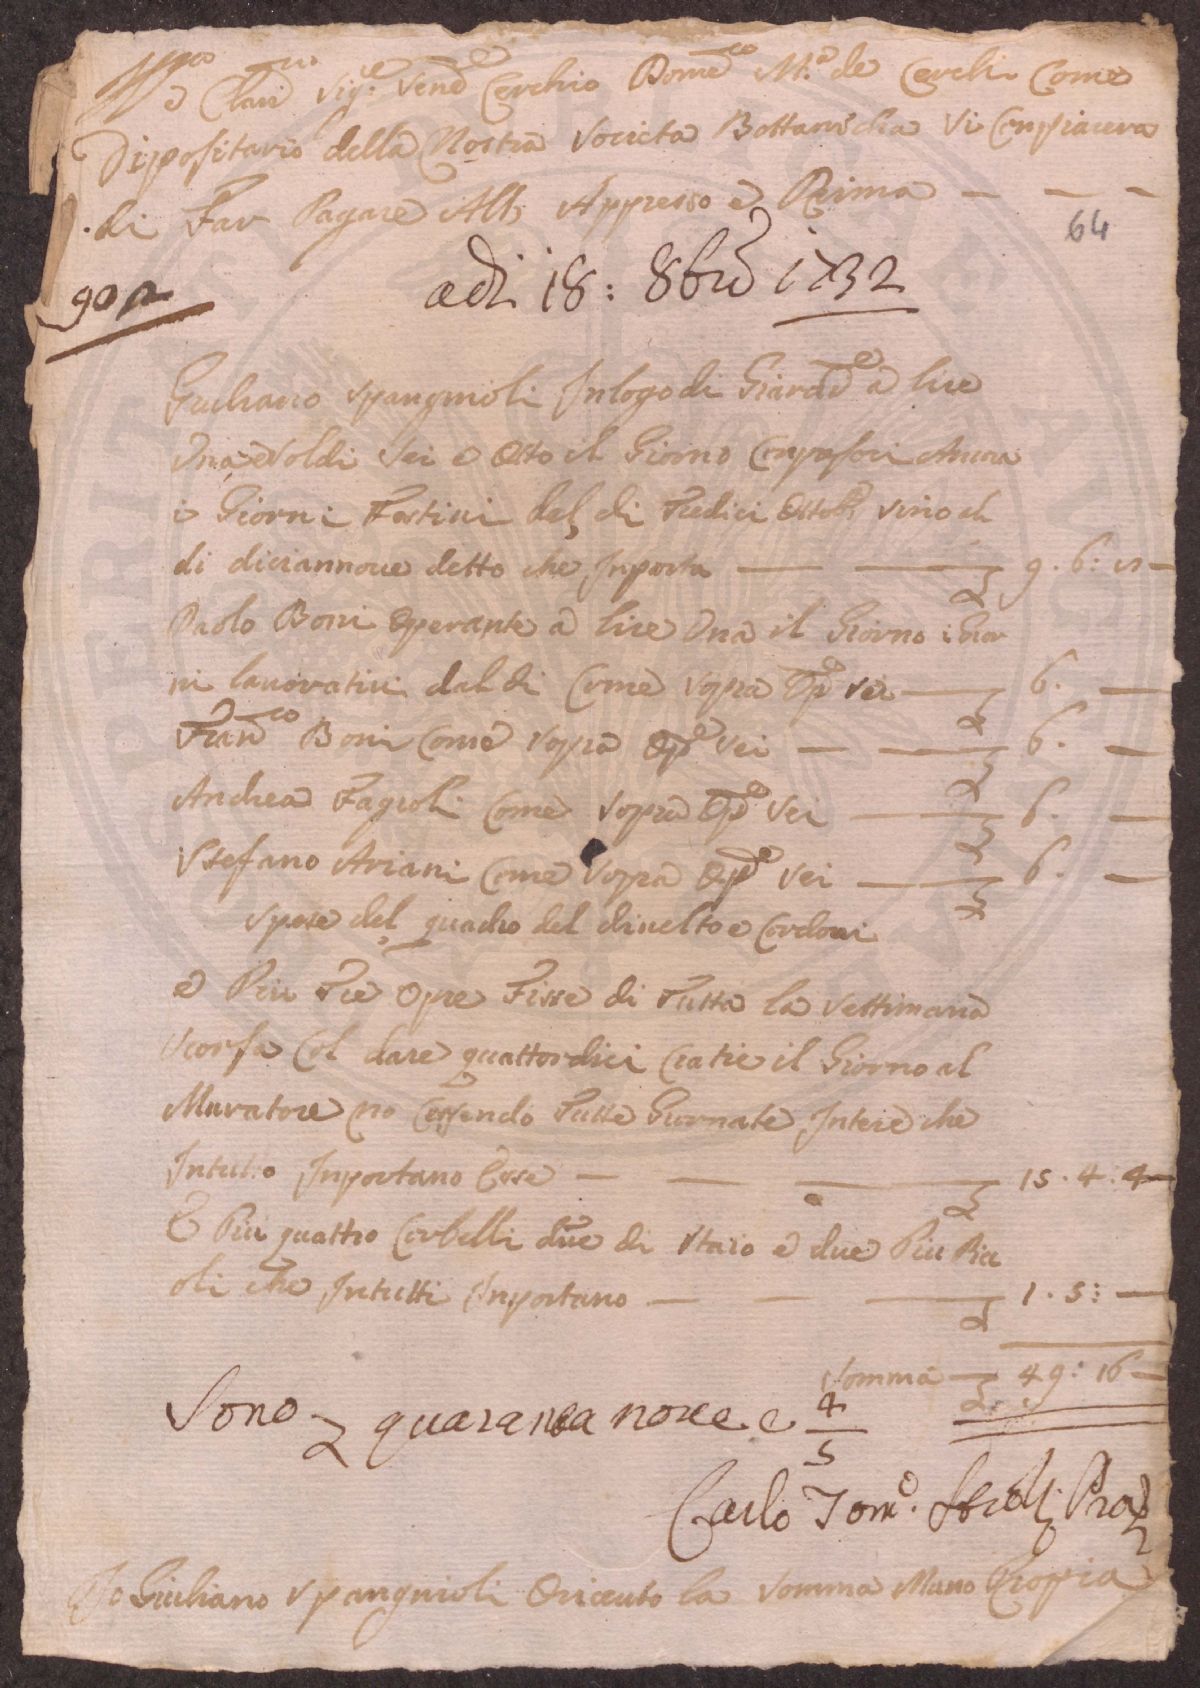 Ill.mo e Clari.mo Sig.re Sen.re Cerchio Dome.co M.a de Cerchi Come
Dipositario della Nostra Societa Bottanicha Si Conpiacera
di Far Pagare Alli Appresso e Prima — — —
64
adi 18: 8bre 1732
Giuliano Spangnioli In logo di Giardi.e a lire
Una e Soldi Sei e Otto il Giorno Conpresovi Ancora
i Giorni Festivi del di Tredici Ottob.e Sino al
di diciannove detto che Inporta — — 9. 6: 8 —
Paolo Boni Operante a lire Una il Giorno i Gior
ni lavorativi dal di Come Sopra Op.e Sei — 6. —
Fran.co Boni Come Sopra Op.e Sei — — 6. —
Andrea Fagioli Come Sopra Op.e Sei — 6. —
Stefano Ariani Come Sopra Op.e Sei — 6. —
Spese del quadro del divelto e Cordoni
e Piu Tre Opre Fisse di Tutta la Settimana
Scorsa Col dare quattordici Cratie il Giorno al
Muratore no Essendo Tutte Giornate Intere che
Intutto Inportano Esse — — — 15. 4: 4 —
E Piu quattro Corbelli due di Staio e due Piu Picc
oli che Intutti Inportano — — — 1. 5: —
Somma — 49: 16 —
Sono quaranta nove e 4/5
Carlo Tom.o Strozzi
Io Giuliano Spangnioli O ricevto la Somma Mano Propria